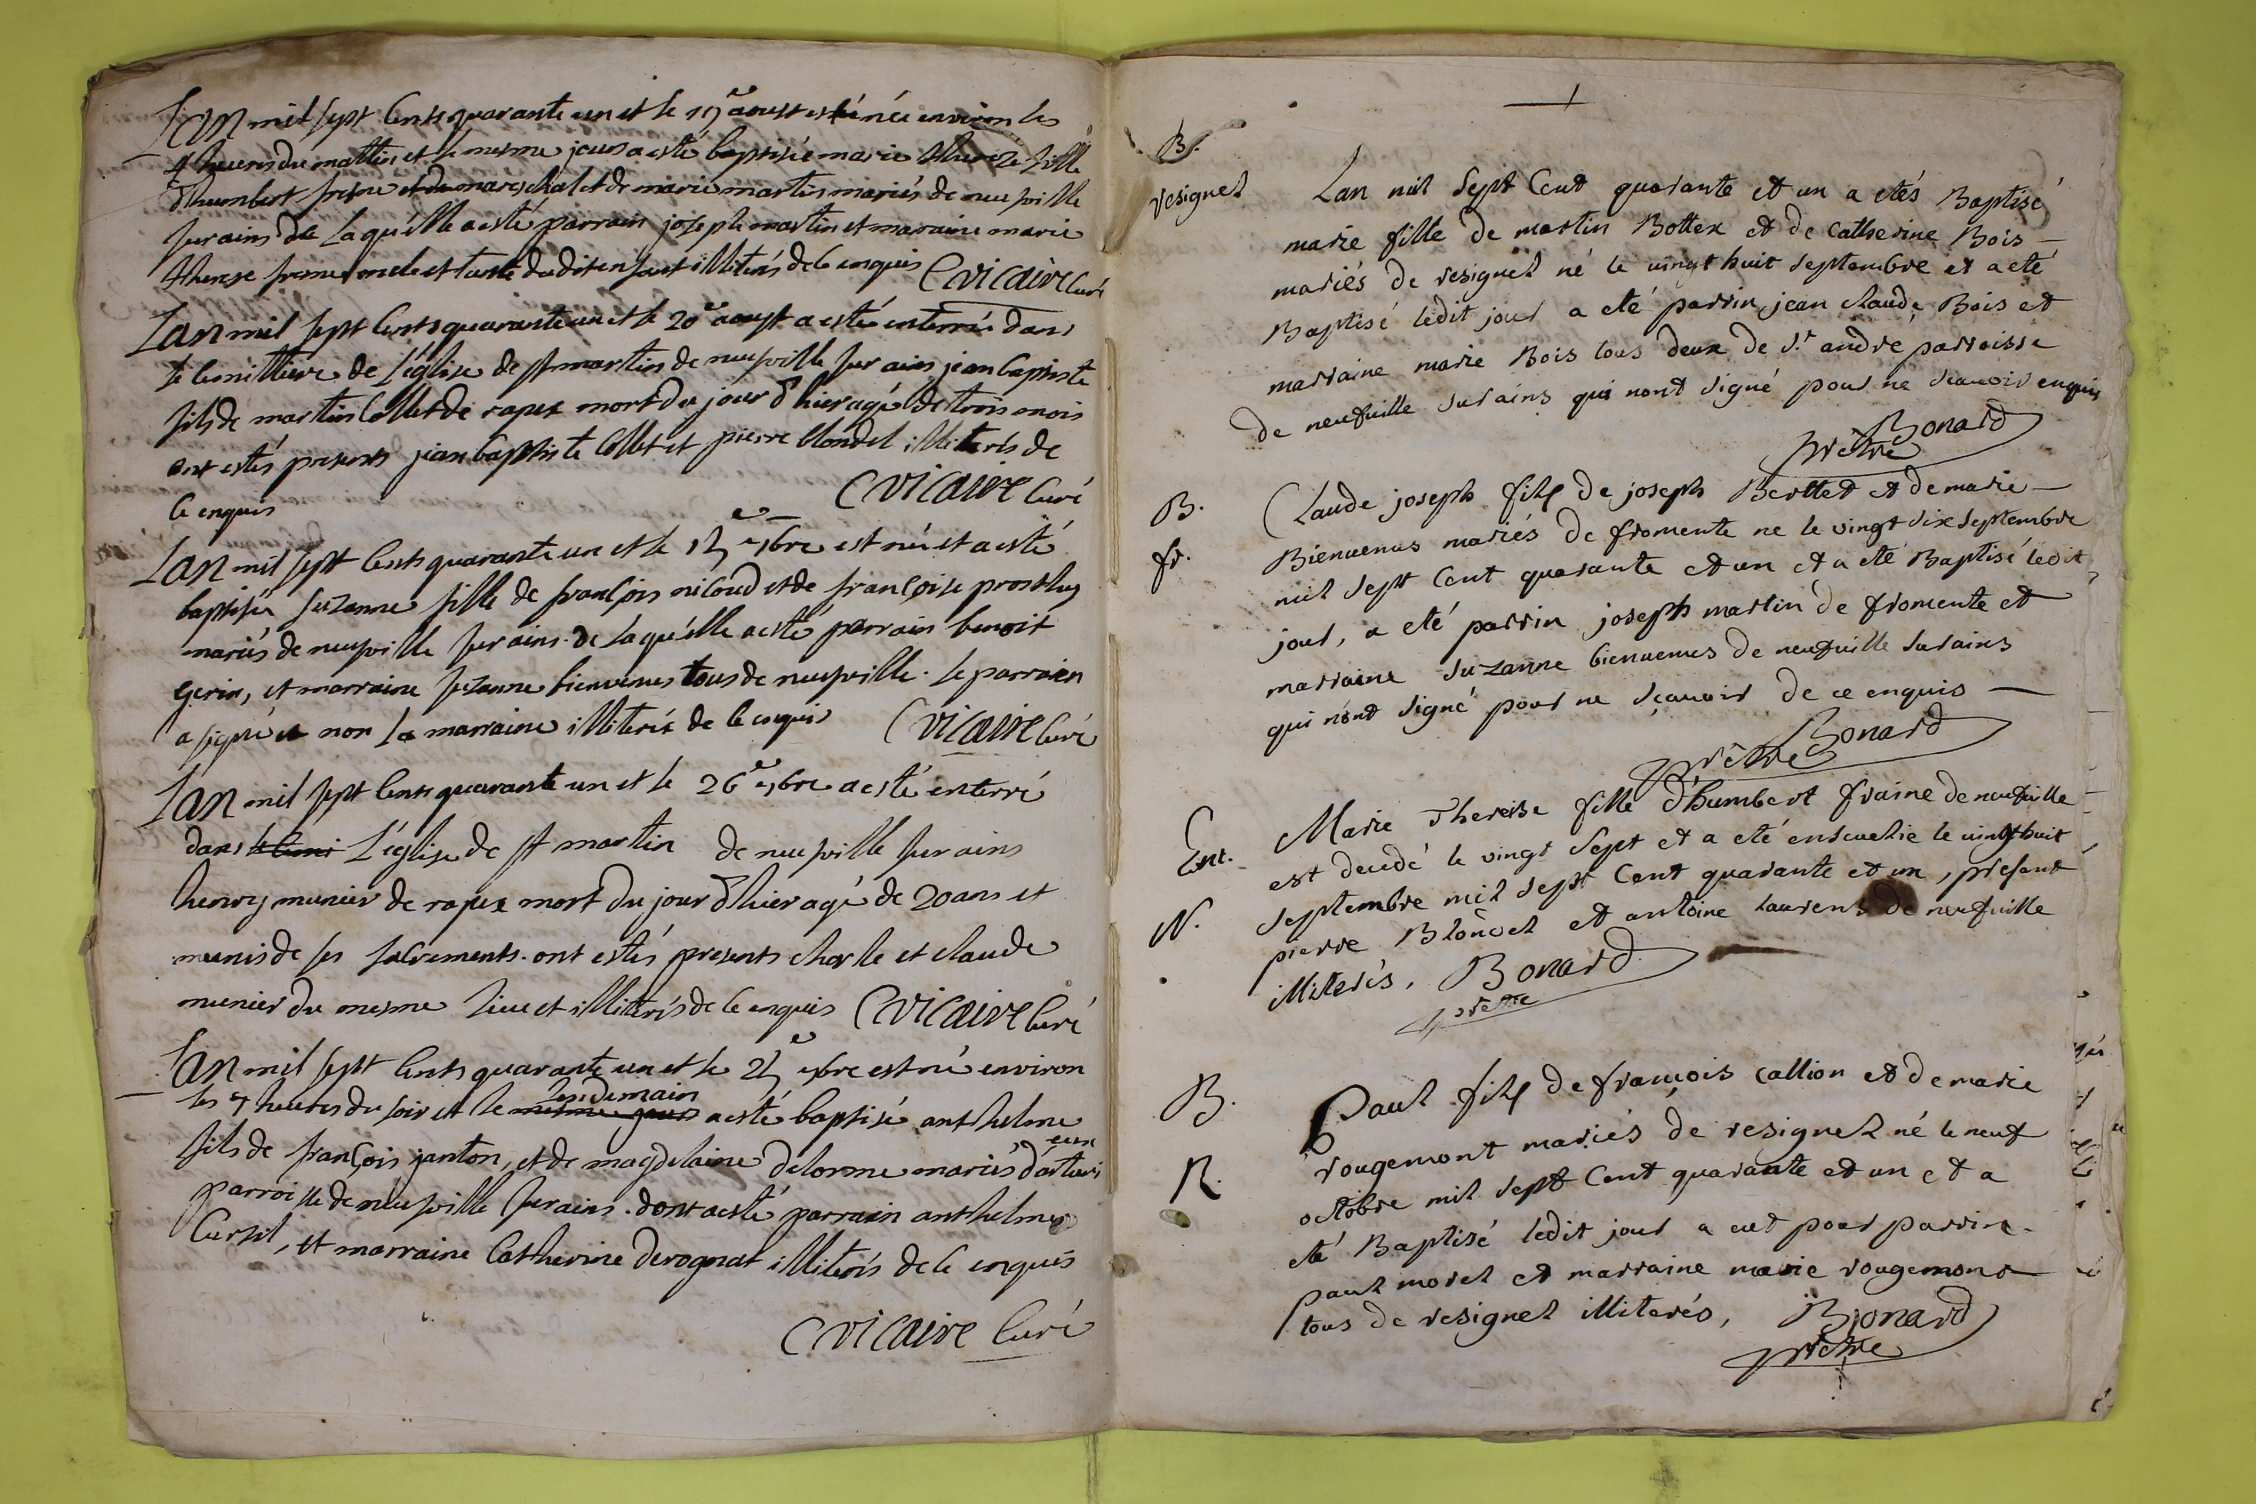 Lan mil sept cents quarante un et le 19e aoust est née environ les
4 heures du mattin et le mesme jour a esté baptisée marie therese fille
d'humbert frene et de mareschal et de marie martin mariés de neufville
sur ains de laquelle a esté parrain joseph martin et maraine marie
therese frene oncle et tante dudit enfant illiterés de ce enquis C vicaire curé
Lan mil sept cents quarante un et le 20e aoust a esté enterré dans
le cemittiere de l'église de st martin de neufville sur ains jean baptiste
fils de martin collet de rapex mort du jour d'hier agé de trois mois
ont estés presents jean baptiste collet et pierre blondel illiterés de
ce enquis C vicaire curé
Lan mil sept cents quarante un et le 15e 7bre est née et a esté
baptisée suzanne fille de françois nicoud et de françoise prost
mariés de neufville sur ains de laquelle a esté parrain benoit
gerin, et marraine suzanne bienvenus tous de neufville. le parrain
a signé et non la marraine illiterée de ce enquis C vicaire curé
Lan mil sept cents quarante un et le 26e 7bre a esté enterré
dans le cemi L'église de st martin de neufville sur ains
henry munier de rapex mort du jour d'hier agé de 20 ans et
munis de ses sacrements. ont estés presents charle et claude
munier du mesme lieu et illiterés de ce enquis C vicaire curé
Lan mil sept cents quarante un et le 25e xbre est né environ
lendemain
les 7 heures du soir et le mesme jour a esté baptisé anthelme
fils de françois janton, et de magdelaine delorme mariés
parroisse de neufville sur ains. dont a esté parrain anthelme
Curzil, et marraine Catherine derognat illiterés de ce enquis
C vicaire curé
B.
resignel
Lan mil sept Cent quarante et un a etés Baptisé
marie fille de martin Bottex et de Catherine Bois —
mariés de resignel né le uingt huit septembre et a eté
Baptisé ledit jour a eté parrin jean claude Bois et
marraine marie Bois tous deux de St andré parroisse
de neufuille sur ains qui nont signé pour ne scauoir enquis
Bonard
prêtre
B.
fr.
Claude joseph fils de joseph Berttet et de marie —
Bienuenus mariés de fromente ne le vingt six septembre
mil sept Cent quarante et un et a eté Baptisé ledit
jour, a eté parrin joseph martin de fromente et
marraine suzanne bienuenus de neufuille sur ains
qui n'ont signé pour ne sçauoir de ce enquis —
Bonard
prêtre
Ent.
N.
Marie Therese fille d'humbert fraine de neufuille
est decedé le vingt sept et a eté enseuelie le uingt huit
septembre mil sept Cent quarante et un, present
pierre Blondel et antoine laurens de neufuille
illiterés, Bonard
prêtre
B.
R.
Paul fils de françois callion et de marie
rougemont mariés de resignel né le neuf
octobre mil sept Cent quarante et un et a
eté Baptisé ledit jour a eut pour parrin
paul morel et marraine marie rougemont
tous de resignel illiterés, Bonard
prêtre